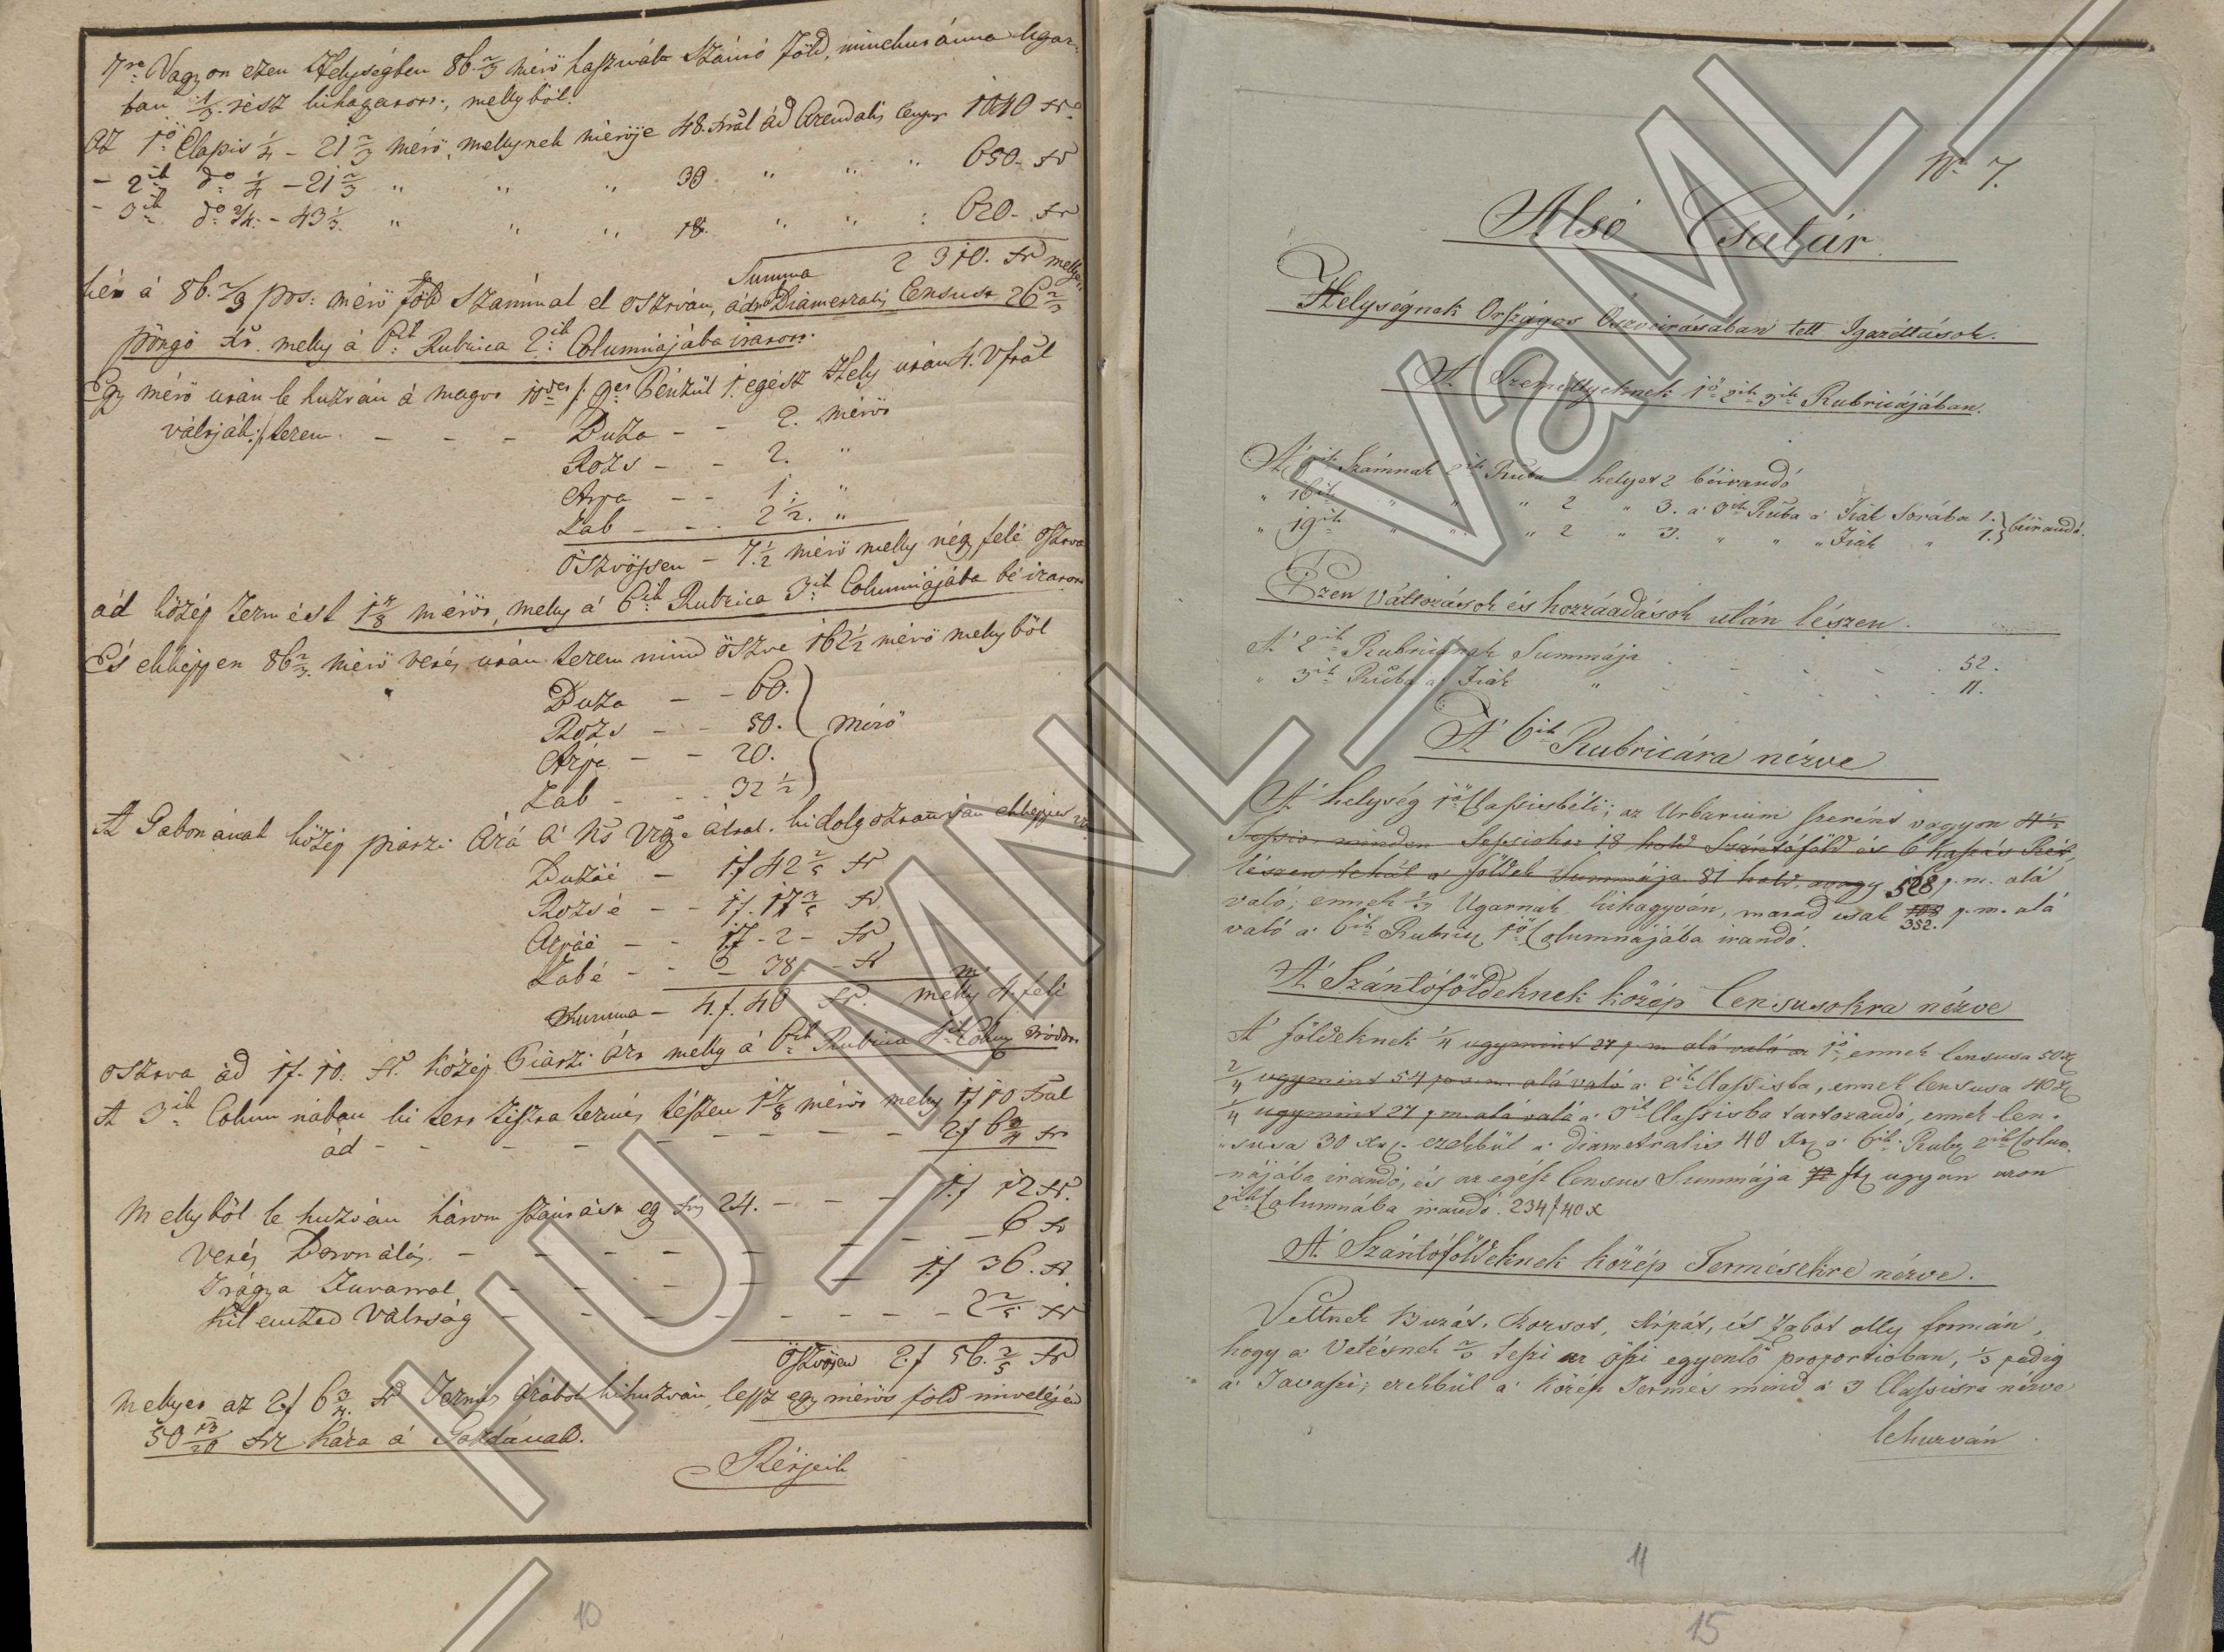 7re Vagyon ezen Helységben 86 2/3 mérő használt Szántó föld, mineku ánna Ugar-
ban 1/3 rész kihagyatott, mellyből.
Az 1ő Classis 1/4 - 21 2/3 mérő, mellynek mérője 48. xrál ád Arendalis Census 1040 xr
- 2ik do 1/4 - 21 2/3 " " " 30 " " " 650- xr
- 3ik do 2/4 - 43 1/3 " " " 18. " " : 620- xr
Summa 2310. xr mellye-
ket á 86. 2/3 pos: mérő föld számmal el osztván, ád Diametralis Census 26 2/3
pöngő xr. melly á 6ik Rubrica 2ik Columnájába iratott.
Egy mérő után le huzván á magot 1 egész Hely után 4. Vfrál
váltják:/ terem - - - Buza - - 2. mérőt
Rozs - - 2. "
Árpa - - 1. "
Zab - - 2 1/2. "
Öszvössen - 7 1/2 mérő melly négy felé osztva
ád közép termést 1 7/8 mérőt, melly á 6ik Rubrica 3ik Columnájába bé iratott
És ekképpen 86 2/3 mérő vetés után terem mind öszve 162 1/2 mérő mellyből
Buza - - 60.
Rozs - - 50. mérő
Árpa - - 20.
Zab - - 32 1/2
A Gabonának közép piarzi Árá á
Buzáé - 1f 42 2/5 xr
Rozsé - - 1f. 17 3/5 xr.
Árpáé - - 1f - 2 - xr
Zabé - - 38 - xr
Summa - 4.f. 40 xr. melly 4. felé
osztva ád 1f. 10. xr. közép Piarzi Árt melly á 6ik Rubrica 4ik
A 3ik Columnában ki tett tiszta termés tészen 1 7/8 mérőt melly 1f 10 xrál
ád - - - - - - - - - 2f 6 3/4 xr
Mellyből le huzván három szántást egy 24. - - - 1f 12 xr.
Vetés Boronálás - - - - - - - - 6 xr
Trágya - - - - - - 1f 36. xr.
Kilentzed Váltság - - - - - - - - 2 2/5 xr
Öszvösen 2.f 56. 2/5 xr
Mellyet az 2f 6 3/4 xr Termés árából kihuzván, lessz egy mérős föld mivelésén
50 13/20 xr kára á Gazdának.
10
No 7.
Alsó Csatár.
Helységnek Országos Öszveirásában tett Igazíttások.
A' Személlyeknek 1ő 2ik 3ik Rubricájában.
A' Számnak 2ik Ruba helyet 2 béirandó
" 16ik " " " 2 " 3. a' 3ik Ruba a' Fiák Sorába 1. } béirandó.
" 19ik " " " 2 " 3. " " " Fiák " 1.
Ezen Változások és hozzáadások után lészen.
A' 2ik Rubricának Summája - - - - - 52.
" 3ik Ruba a' Fiák " - - - - - 11.
A' 6ik Rubricára nézve
A' helység 1ő Classisbéli; az Urbarium szerént vagyon 4 1/2
Sessio minden Sessiohoz 18 hold Szántóföld és 6 kaszás Rét,
lészen tehát a' földek Summája 81 hold, avagy 528 p. m. alá
való; ennek 1/3 Ugarnak kihagyván, marad csak 352. p. m. alá
való a' 6ik Rubricz 1ő Columnájába irandó.
A' Szántóföldeknek közép Censusokra nézve
A' földeknek 1/4 ugymint 27 p. m. alá való az 1ő, ennek Censusa 50 x
2/4 ugymint 54 p. m. alá való a' 2ik Classisba, ennek Censusa 40 x
1/4 ugymint 27 p. m. alá való a' 3ik Classisba tartozandó, ennek Cen-
susa 30 xr. ezekbül a' diametralis 40 xr a' 6ik Rubr 2ik Colum-
nájába irandó, és az egész Census Summája 72 ft ugyan azon
2ik Columnába irandó. 234 f 40 x
A' Szántóföldeknek közép Termésekre nézve.
Vettnek Buzát, Rozsot, Árpát, és Zabot olly formán,
hogy a' Vetésnek 2/3 teszi az őszi egyenlő proportioban, 1/3 pedig
a' Tavaszi; ezekbül a' közép Termés mind a' 3 Classisra nézve
lehuzván
11
15